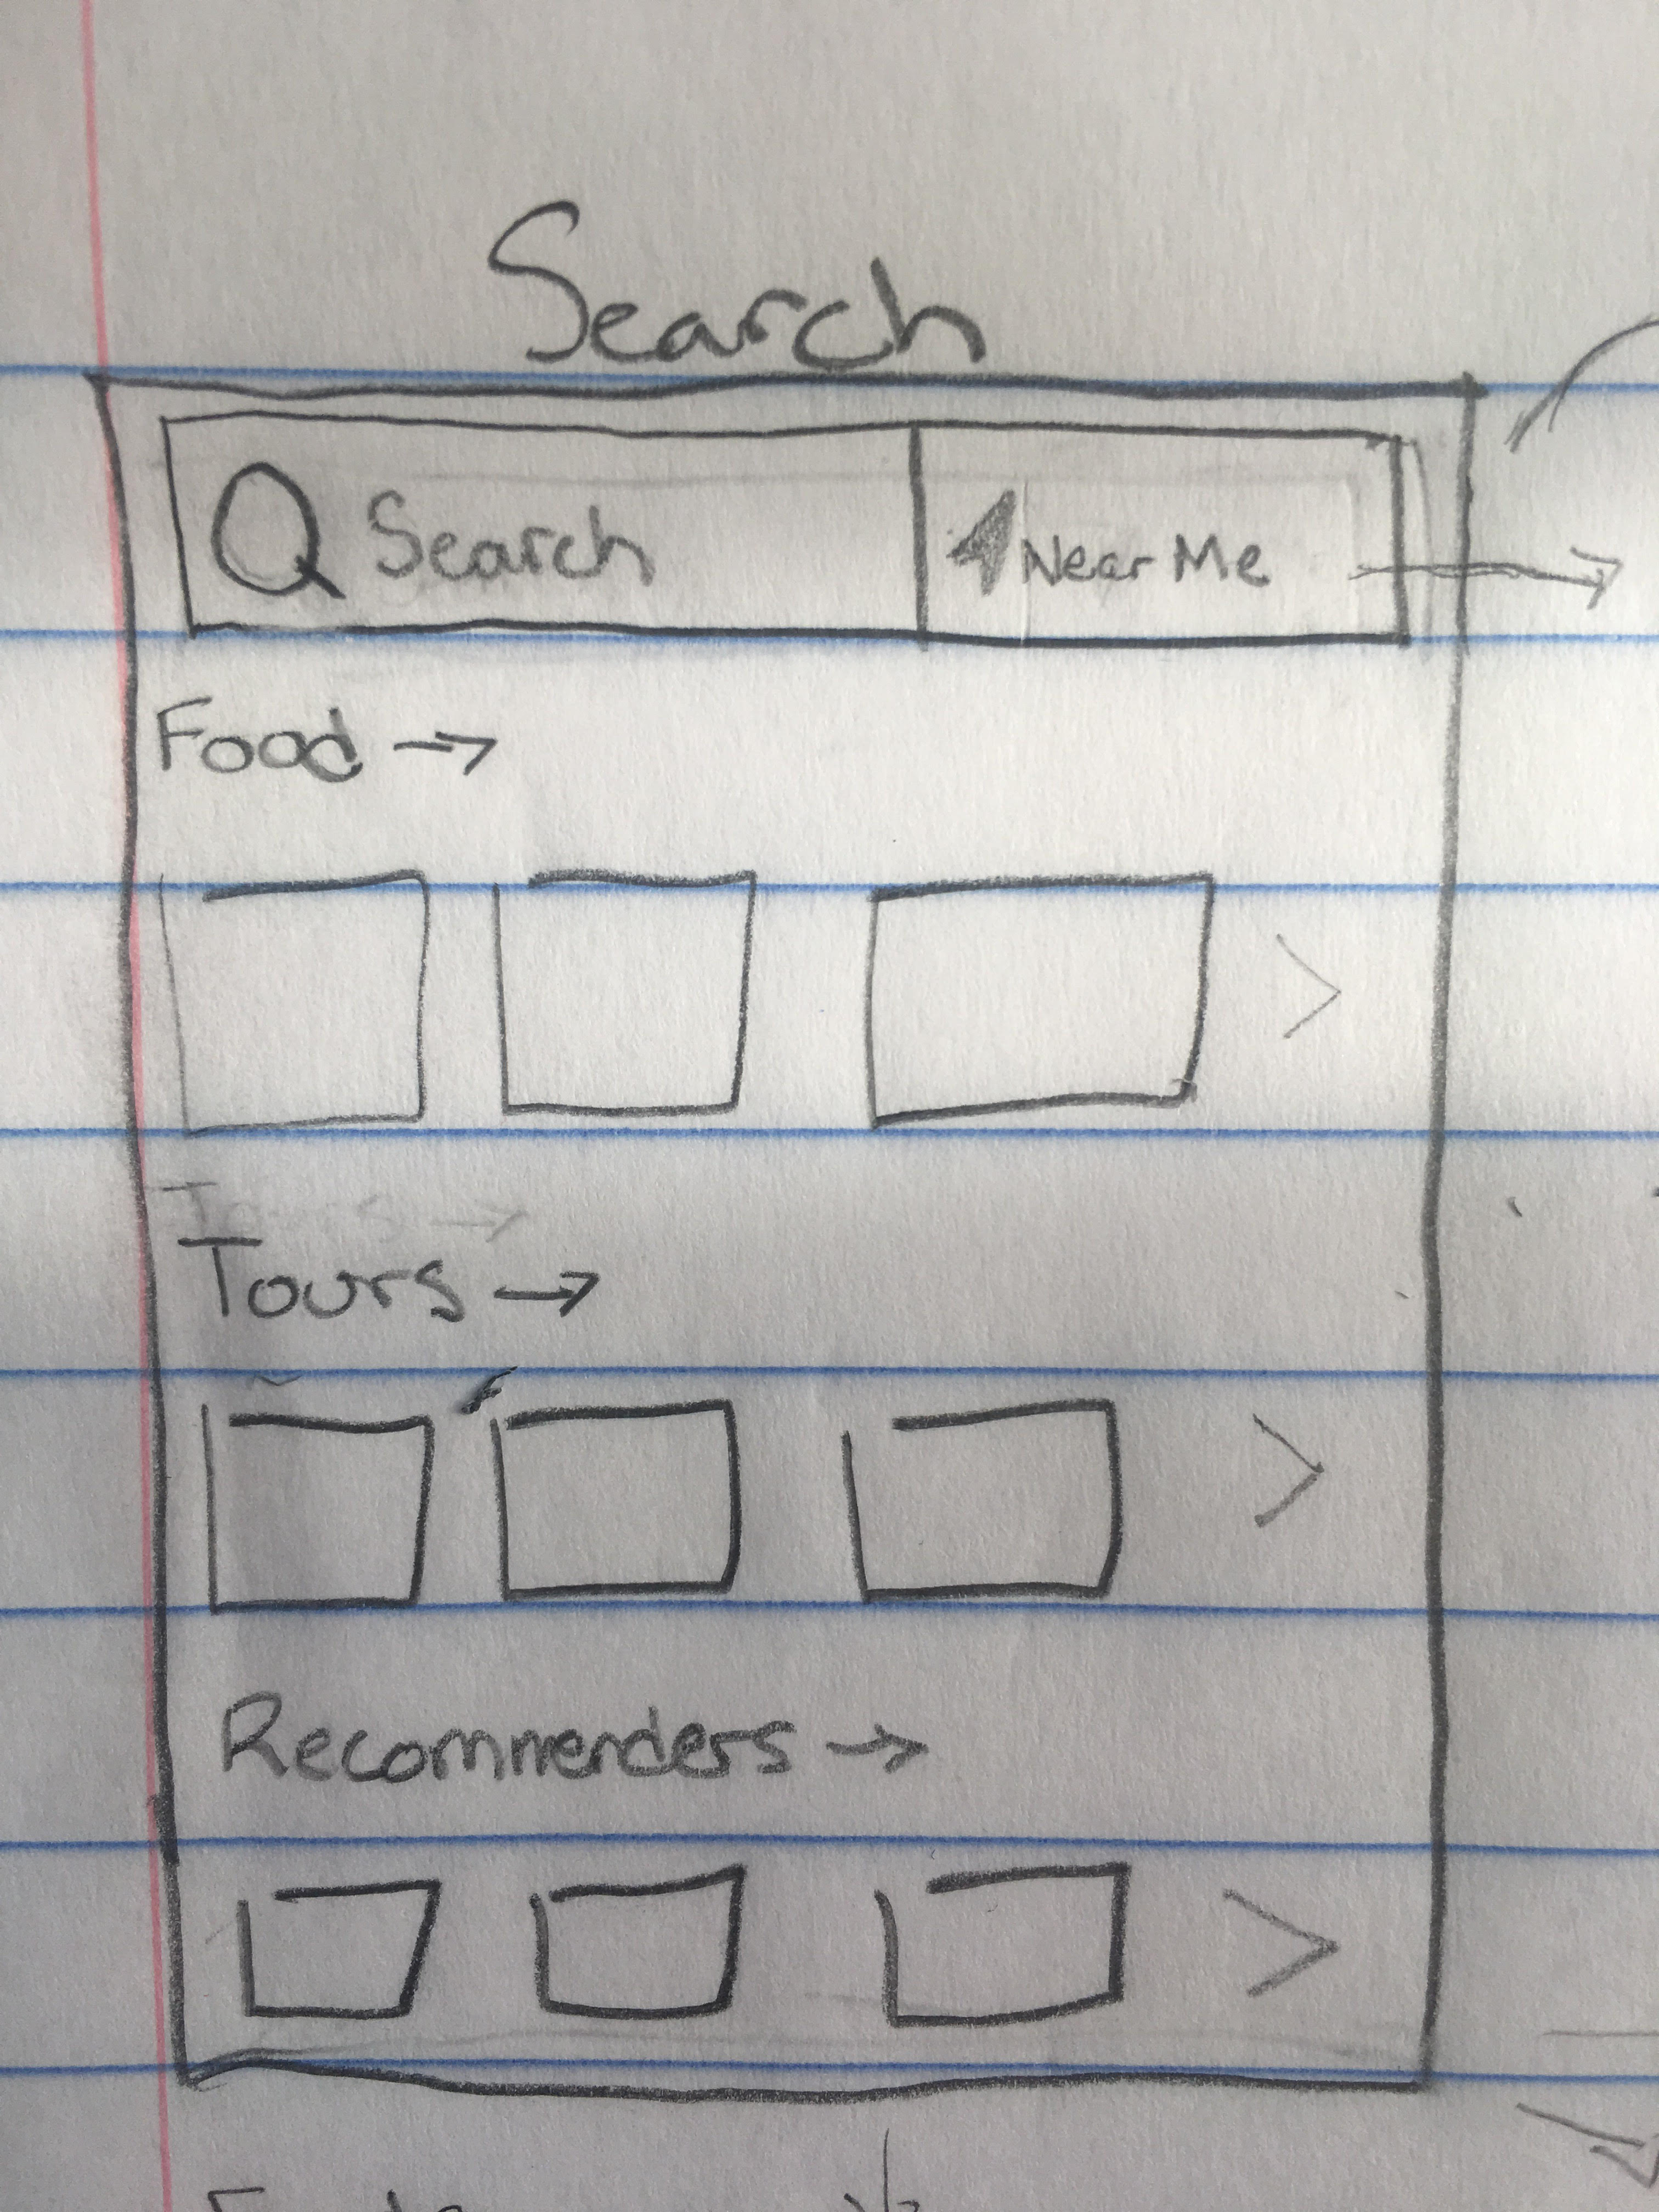 Search
Search Near Me
Food →
Tours →
Tours →
Recommenders →